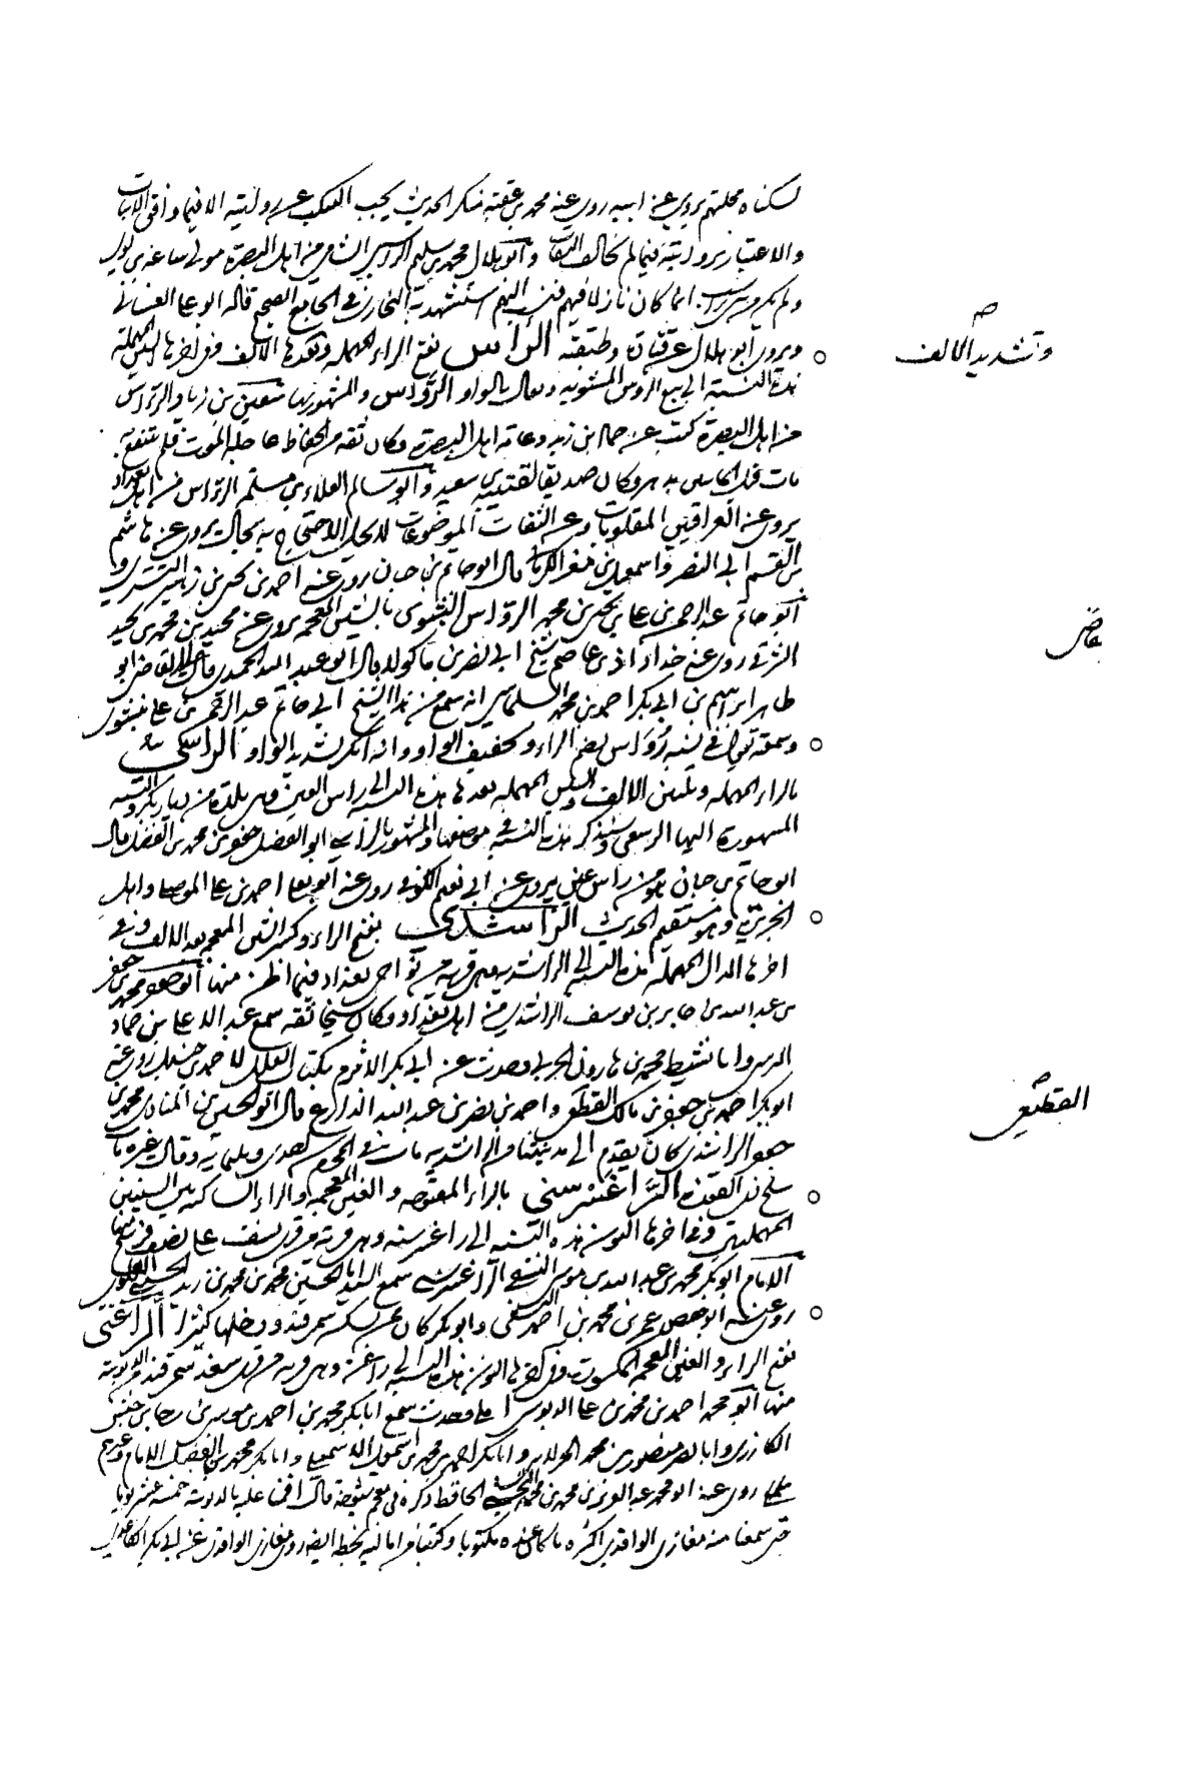 لسكناه محلتهم يروي عن ابيه روى عنه محمد بن عقبة منكر الحديث يجب التنكب عن روايته الا فيما وافق الاثبات
والاعتبار بروايته فيما لم يخالف الثقات وابو هلال محمد بن سليم الراسبي الشامي من اهل البصرة مولى سامة بن لوي
ولم يكن من بني راسب انما كان نازلا فيهم فنسب اليهم استشهد به البخاري في الجامع الصحيح قاله ابو علي الغساني
ويروي ابو هلال عن قتادة وطبقته الرأاس بفتح الراء المهملة وبعدها الالف وفي اخرها السين المهملة
وتشديد الالف
هذه النسبة الى بيع الروس المشوية ويقال بالواو الروّاس والمشهور بها شعيب بن زياد الرأاس
من اهل البصرة كتب عن حماد بن زيد وعامة اهل البصرة وكان ثقة من الحفاظ عاجله الموت فلم ينتفع به
مات قبل وكان صديقا لقتيبة بن سعيد وابو سالم العلاء بن مسلمة الرؤاس من اهل بغداد
يروي عن العراقيين المقلوبات وعن الثقات الموضوعات لا يحل الاحتجاج به بحال يروي عن هاشم
بن القسم ابي النضر واسمعيل بن مغرا الكرماني قال ابو حاتم بن حبان روى عنه احمد بن يحيى بن زهير التستري و
ابو حاتم عبد الرحمن بن علي بن يحيى بن محمد الرواس النشوى بالشين المعجمة يروي عن محمد بن محمد بن
النزقي روى عنه خداداذ بن عاصم شيخ ابي نصر بن ماكولا قال ابو عبد الله الحميدي قال لنا القاضي ابو
قاضي
طاهر ابراهيم بن ابي بكر احمد بن محمد السلماسي انه سمع من هذا الشيخ ابي حاتم عبد الرحمن بن علي بنشوى
وسمعته يقول في نسبه رُوَاس بضم الراء وتخفيف الواو وانه انكر تشديد الواو الراسني
بالراء المهملة وتليين الالف والسين المهملة بعدها هذه النسبة الى راس العين وهي بلدة من ديار بكر والنسبة
المشهورة اليها الرسعني وسنذكر هذه النسبة في موضعها والمشهور بالراسني ابو الفضل جعفر بن محمد بن الفضل قال
ابو حاتم بن حبان هو من راس عين يروي عن ابي نعيم الكوفي روى عنه ابو يعلى احمد بن علي الموصلي واهل
الجزيرة وهو مستقيم الحديث الراشدي بفتح الراء وكسر الشين المعجمة بعد الالف وفي
اخرها الدال المهملة هذه النسبة الى الراشدية وهي قرية من نواحي بغداد فيما اظن منها ابو جعفر محمد بن جعفر
بن عبد الله بن جابر بن يوسف الراشدي من اهل بغداد وكان شيخا ثقة سمع عبد الاعلى بن حماد
النرسي وابا نشيط محمد بن هارون الحربي وحدث عن ابي بكر الاثرم بكتاب العلل لاحمد بن حنبل روى عنه
ابو بكر احمد بن جعفر بن مالك القطيعي واحمد بن نصر بن عبد الله الذارع قال ابو الحسين بن المنادي محمد بن
القطيعي
جعفر الراشدي كان يقدم الى مدينتنا من الراشدية مات في المحرم سنة احدى وثلثمائة وقال غيره مات
سلخ ذي القعدة الراغسرسني بالراء المفتوحة والغين المعجمة والراء الساكنة بين السينين
المهملتين وفي اخرها النون هذه النسبة الى راغسرسنه وهي قرية من قرى نسف على نصف فرسخ منها
الامام ابو بكر محمد بن عبد الله بن موسى النسفي الراغسرسني سمع السيد ابا الحسين محمد بن محمد بن زيد الحسيني العلوي
روى عنه ابو حفص عمر بن محمد بن احمد النسفي وابو بكر كان ممن يسكن سمرقند ودخلها كثيرا الراغني
بفتح الراء والغين المعجمة المكسورة وفي اخرها النون هذه النسبة الى راغنة وهي قرية من قرى سغد سمرقند من الدبوسية
منها ابو محمد احمد بن محمد بن علي الدبوسي املى وحدث سمع ابا بكر محمد بن احمد بن موسى بن رجا بن حنش
الكازري وابا نصر منصور بن محمد الحرلاني وابا بكر احمد بن محمد بن اسمعيل الاسمعيلي وابا بكر محمد بن الفضل الامام وغيرهم
روى عنه ابو محمد عبد العزيز بن محمد بن محمد النخشبي الحافظ وذكره في معجم شيوخه قال اقمنا عليه بالدبوسية خمسة عشر يوما
حتى سمعنا منه مغازي الواقدي اكثره ما كان عنده مكتوبا وكتبنا من اماليه بخطه ايضا روى مغازي الواقدي عن ابي بكر الكاغدي